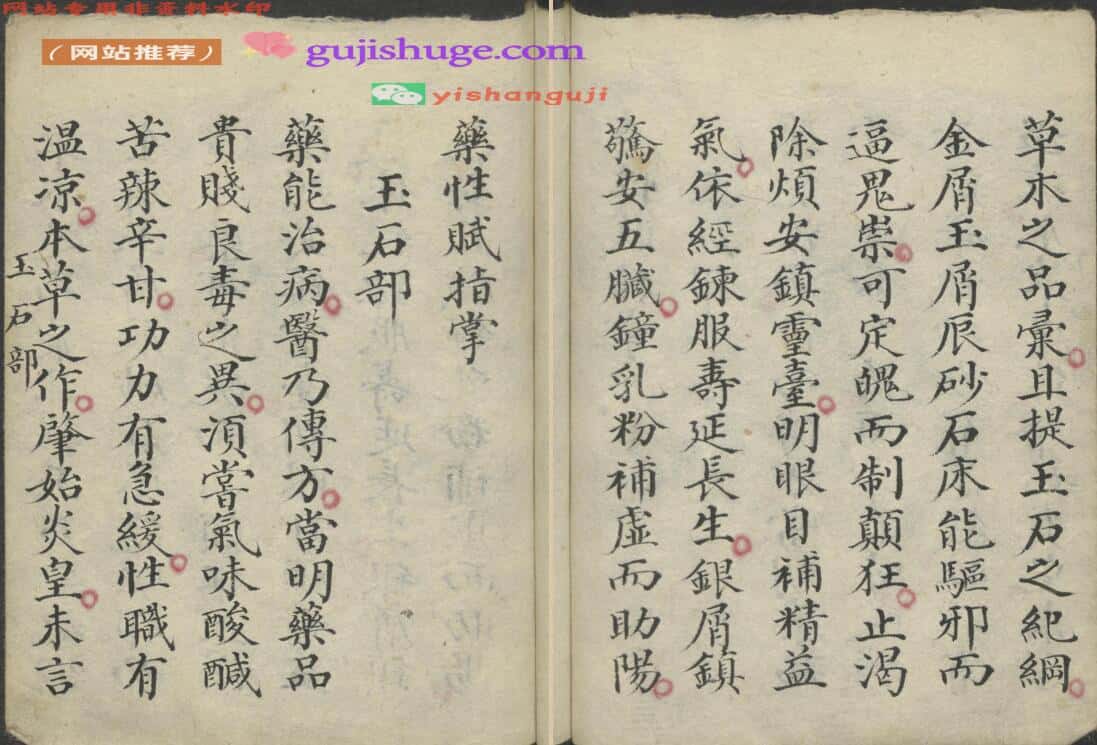 网站专用非资料水印
（网站推荐）
gujishuge.com
yishanguji
藥性賦指掌
玉石部
藥能治病醫乃傳方當明藥品
貴賤良毒之異須嘗氣味酸鹹
苦辣辛甘功力有急緩性職有
温凉本草之作肇始炎皇未言
玉石部
草木之品彙且提玉石之紀綱
金屑玉屑辰砂石床能驅邪而
逼鬼祟可定魄而制顛狂止渴
除煩安鎮靈臺明眼目補精益
氣依經鍊服壽延長生銀屑鎮
驚安五臟鐘乳粉補虛而助陽